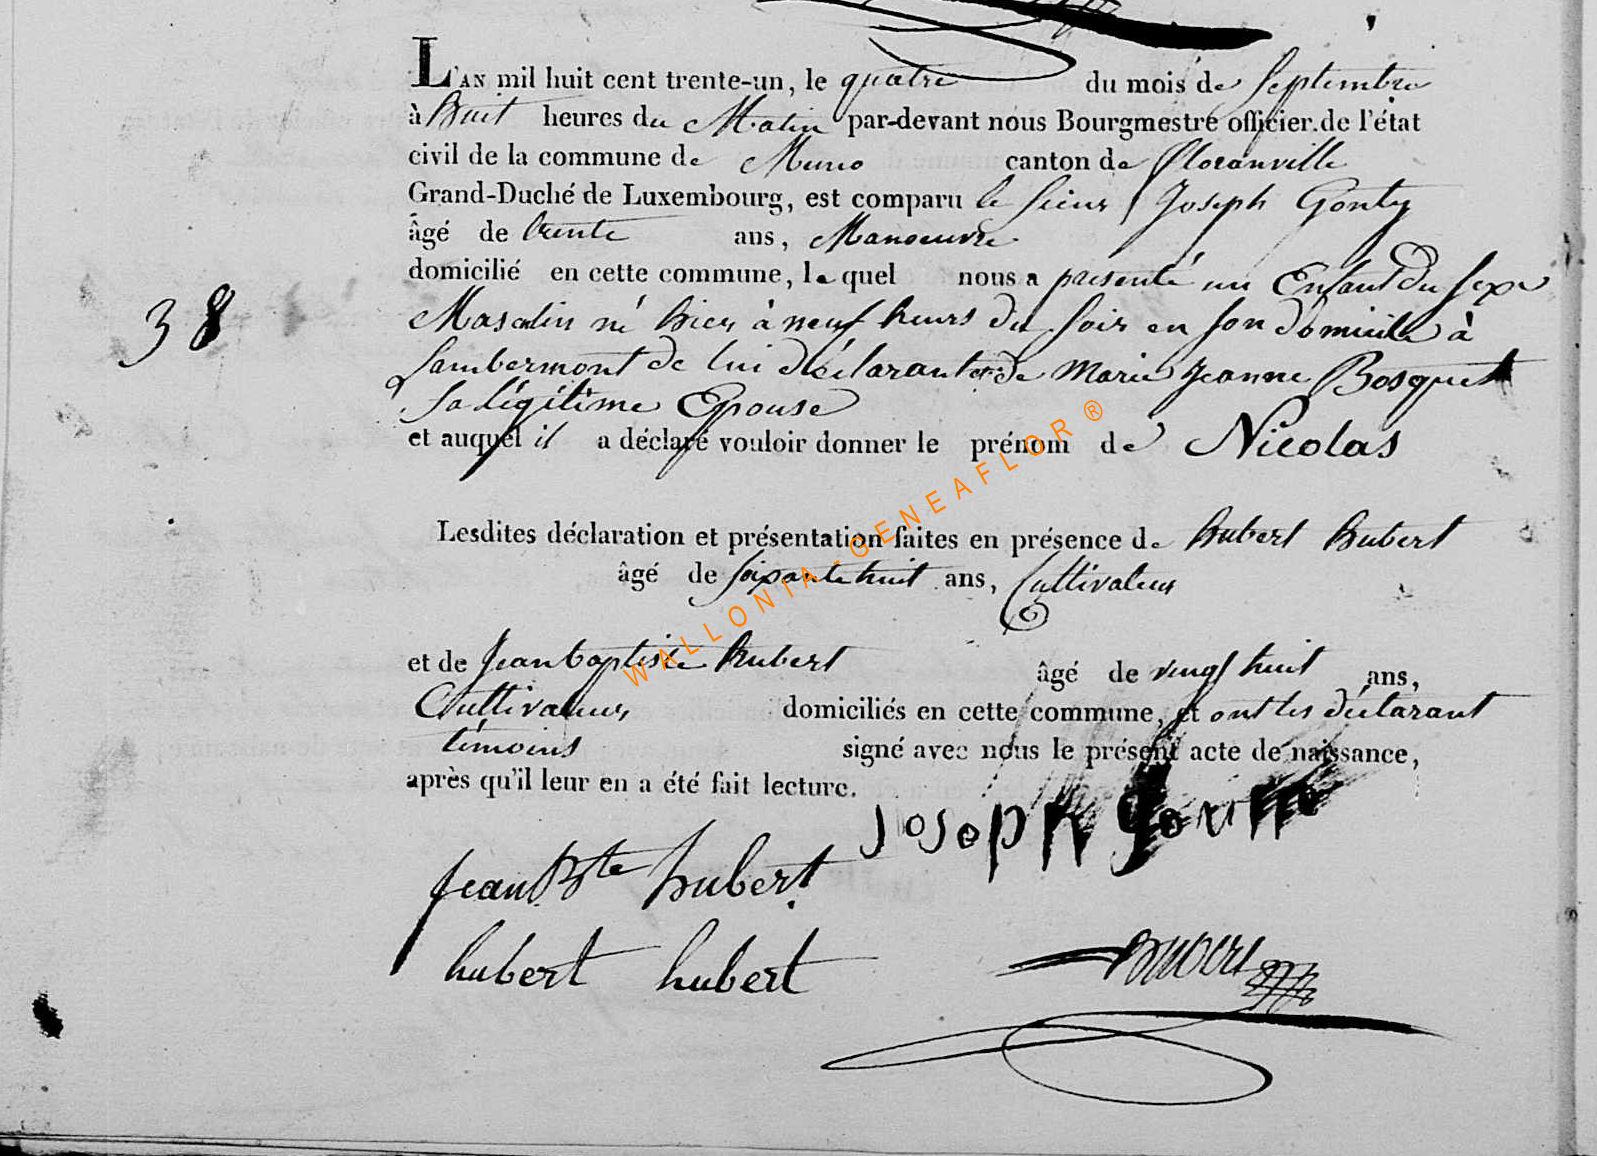 L'AN mil huit cent trente-un, le quatre du mois de Septembre
à huit heures du Matin par-devant nous Bourgmestre officier de l'état
civil de la commune de Muno canton de floranville
Grand-Duché de Luxembourg, est comparu le sieur Joseph Gonty
âgé de trente ans, Manoeuvre
domicilié en cette commune, le quel nous a presenté un Enfant du sexe
38
Masculin né hier à neuf heurs du soir en son domicile à
Lambermont de lui déclarant et de Marie Jeanne Bosquet
sa légitime Epouse
et auquel il a déclaré vouloir donner le prénom de Nicolas
Lesdites déclaration et présentation faites en présence de hubert hubert
âgé de soixante huit ans, Cultivateur
et de Jean baptiste hubert âgé de vingt huit ans,
Cultivateur domiciliés en cette commune, et ont les déclarant
témoins signé avec nous le présent acte de naissance,
après qu'il leur en a été fait lecture.
Joseph
Jean Bte hubert
hubert hubert
WALLONIA-GENEAFLOR®